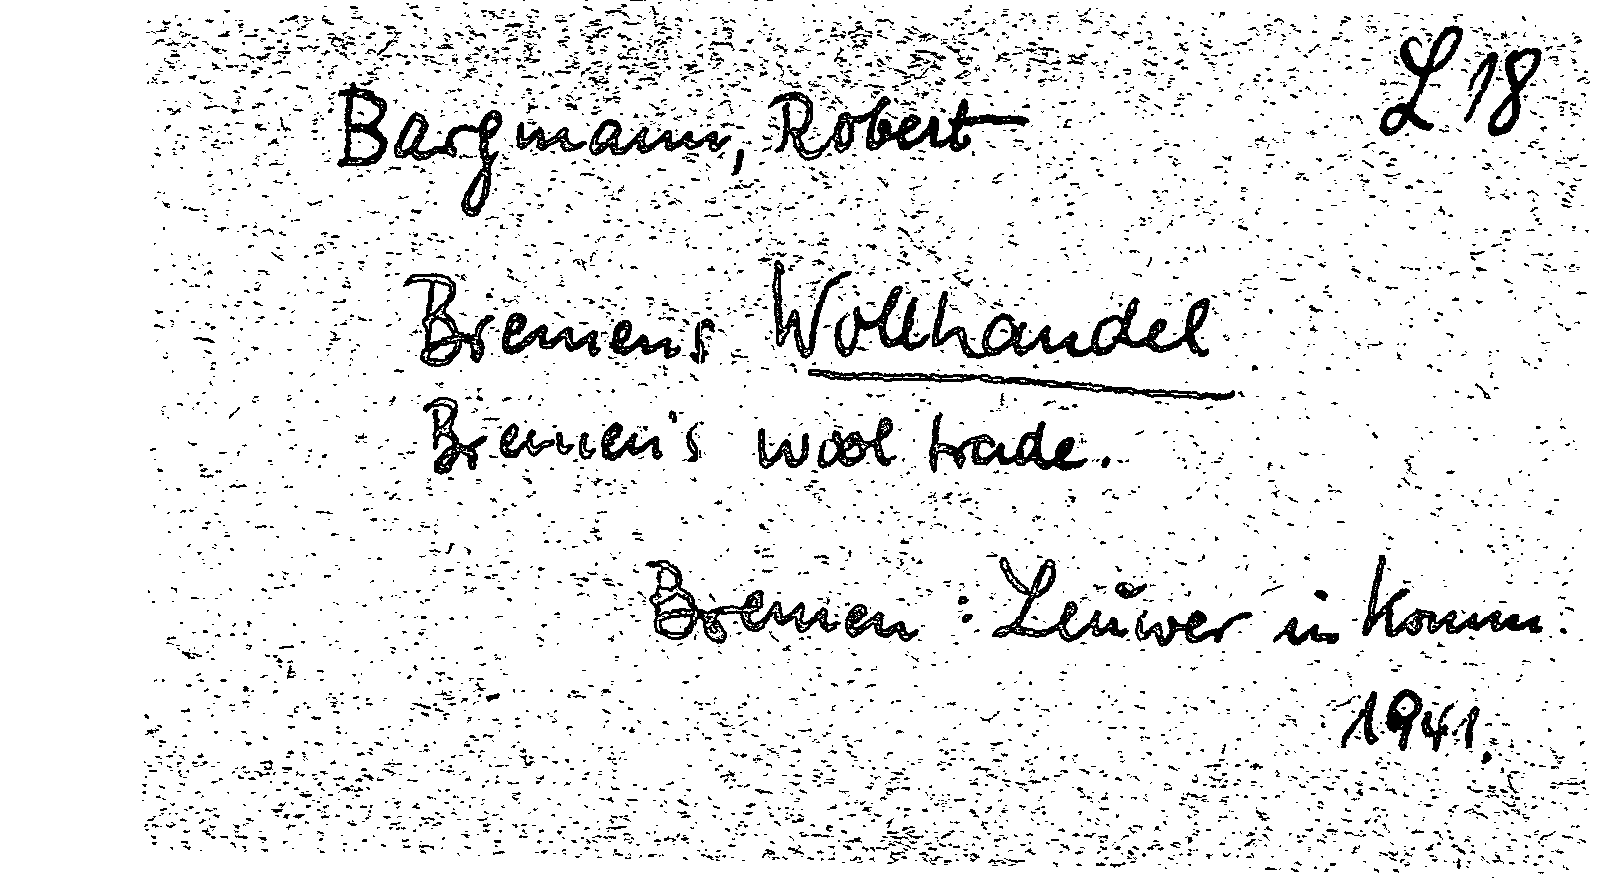 L 18
Bargmann, Robert
Bremens Wollhandel
Bremen's wool trade.
Bremen : Leuwer in Komm.
1941.